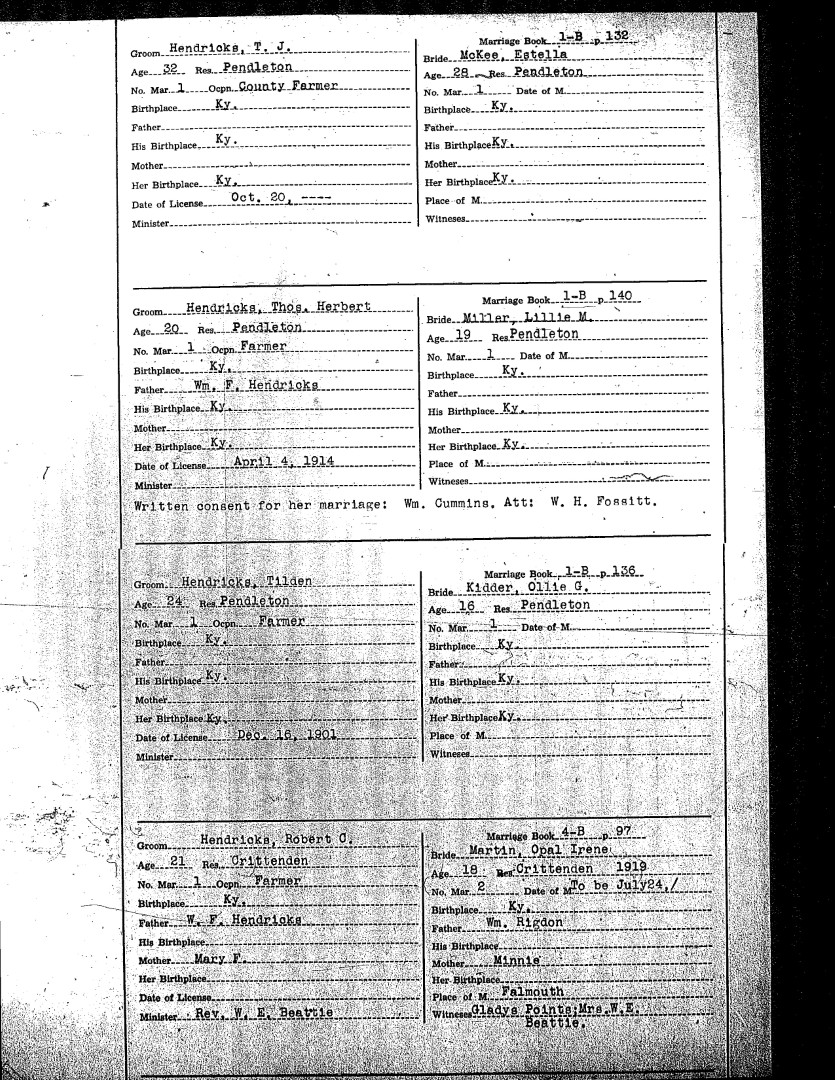 Marriage Book 1-B p. 132
Groom Hendricks, T. J.
Bride McKee, Estella
Age 32 Res Pendleton
Age 28 Res Pendleton
No. Mar. 1 Ocpn. County Farmer
No. Mar. 1 Date of M.
Birthplace Ky.
Birthplace Ky.
Father
Father
His Birthplace Ky.
His Birthplace Ky.
Mother
Mother
Her Birthplace Ky.
Her Birthplace Ky.
Date of License Oct. 20, ----
Place of M.
Minister
Witneses
Marriage Book 1-B p. 140
Groom Hendricks, Thos. Herbert
Bride Miller, Lillie M.
Age 20 Res. Pendleton
Age 19 Res Pendleton
No. Mar. 1 Ocpn. Farmer
No. Mar. 1 Date of M.
Birthplace Ky.
Birthplace Ky.
Father Wm. F. Hendricks
Father
His Birthplace Ky.
His Birthplace Ky.
Mother
Mother
Her Birthplace Ky.
Her Birthplace Ky.
Date of License April 4, 1914
Place of M.
Minister
Witneses
Written consent for her marriage: Wm. Cummins, Att: W. H. Fossitt.
Marriage Book 1-B p. 136
Groom Hendricks, Tilden
Bride Kidder, Ollie G.
Age 24 Res Pendleton
Age 16 Res. Pendleton
No. Mar. 1 Ocpn. Farmer
No. Mar. 1 Date of M.
Birthplace Ky.
Birthplace Ky.
Father
Father
His Birthplace Ky.
His Birthplace Ky.
Mother
Mother
Her Birthplace Ky.
Her Birthplace Ky.
Date of License Dec. 16, 1901
Place of M.
Minister
Witneses
Marriage Book 4-B p. 97
Groom Hendricks, Robert C.
Bride Martin, Opal Irene
Age 21 Res. Crittenden
Age 18 Res Crittenden 1919
No. Mar. 1 Ocpn. Farmer
No. Mar. 2 Date of M. To be July24,/
Birthplace Ky.
Birthplace Ky.
Father W. F. Hendricks
Father Wm. Rigdon
His Birthplace
His Birthplace
Mother Mary F.
Mother Minnie
Her Birthplace
Her Birthplace
Date of License
Place of M. Falmouth
Minister Rev. W. E. Beattie
Witneses Gladys Points;Mrs.W.E.
Beattie.